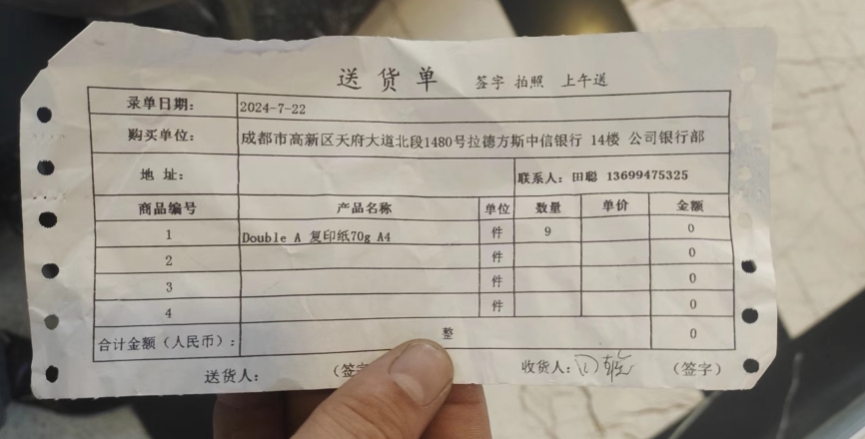 送货单 签字 拍照 上午送
录单日期: 2024-7-22
购买单位: 成都市高新区天府大道北段1480号拉德方斯中信银行 14楼 公司银行部
地 址: 联系人: 田聪 13699475325
商品编号 产品名称 单位 数量 单价 金额
1 Double A 复印纸70g A4 件 9 0
2 件 0
3 件 0
4 件 0
合计金额（人民币）: 整 0
送货人: (签字 收货人: (签字)